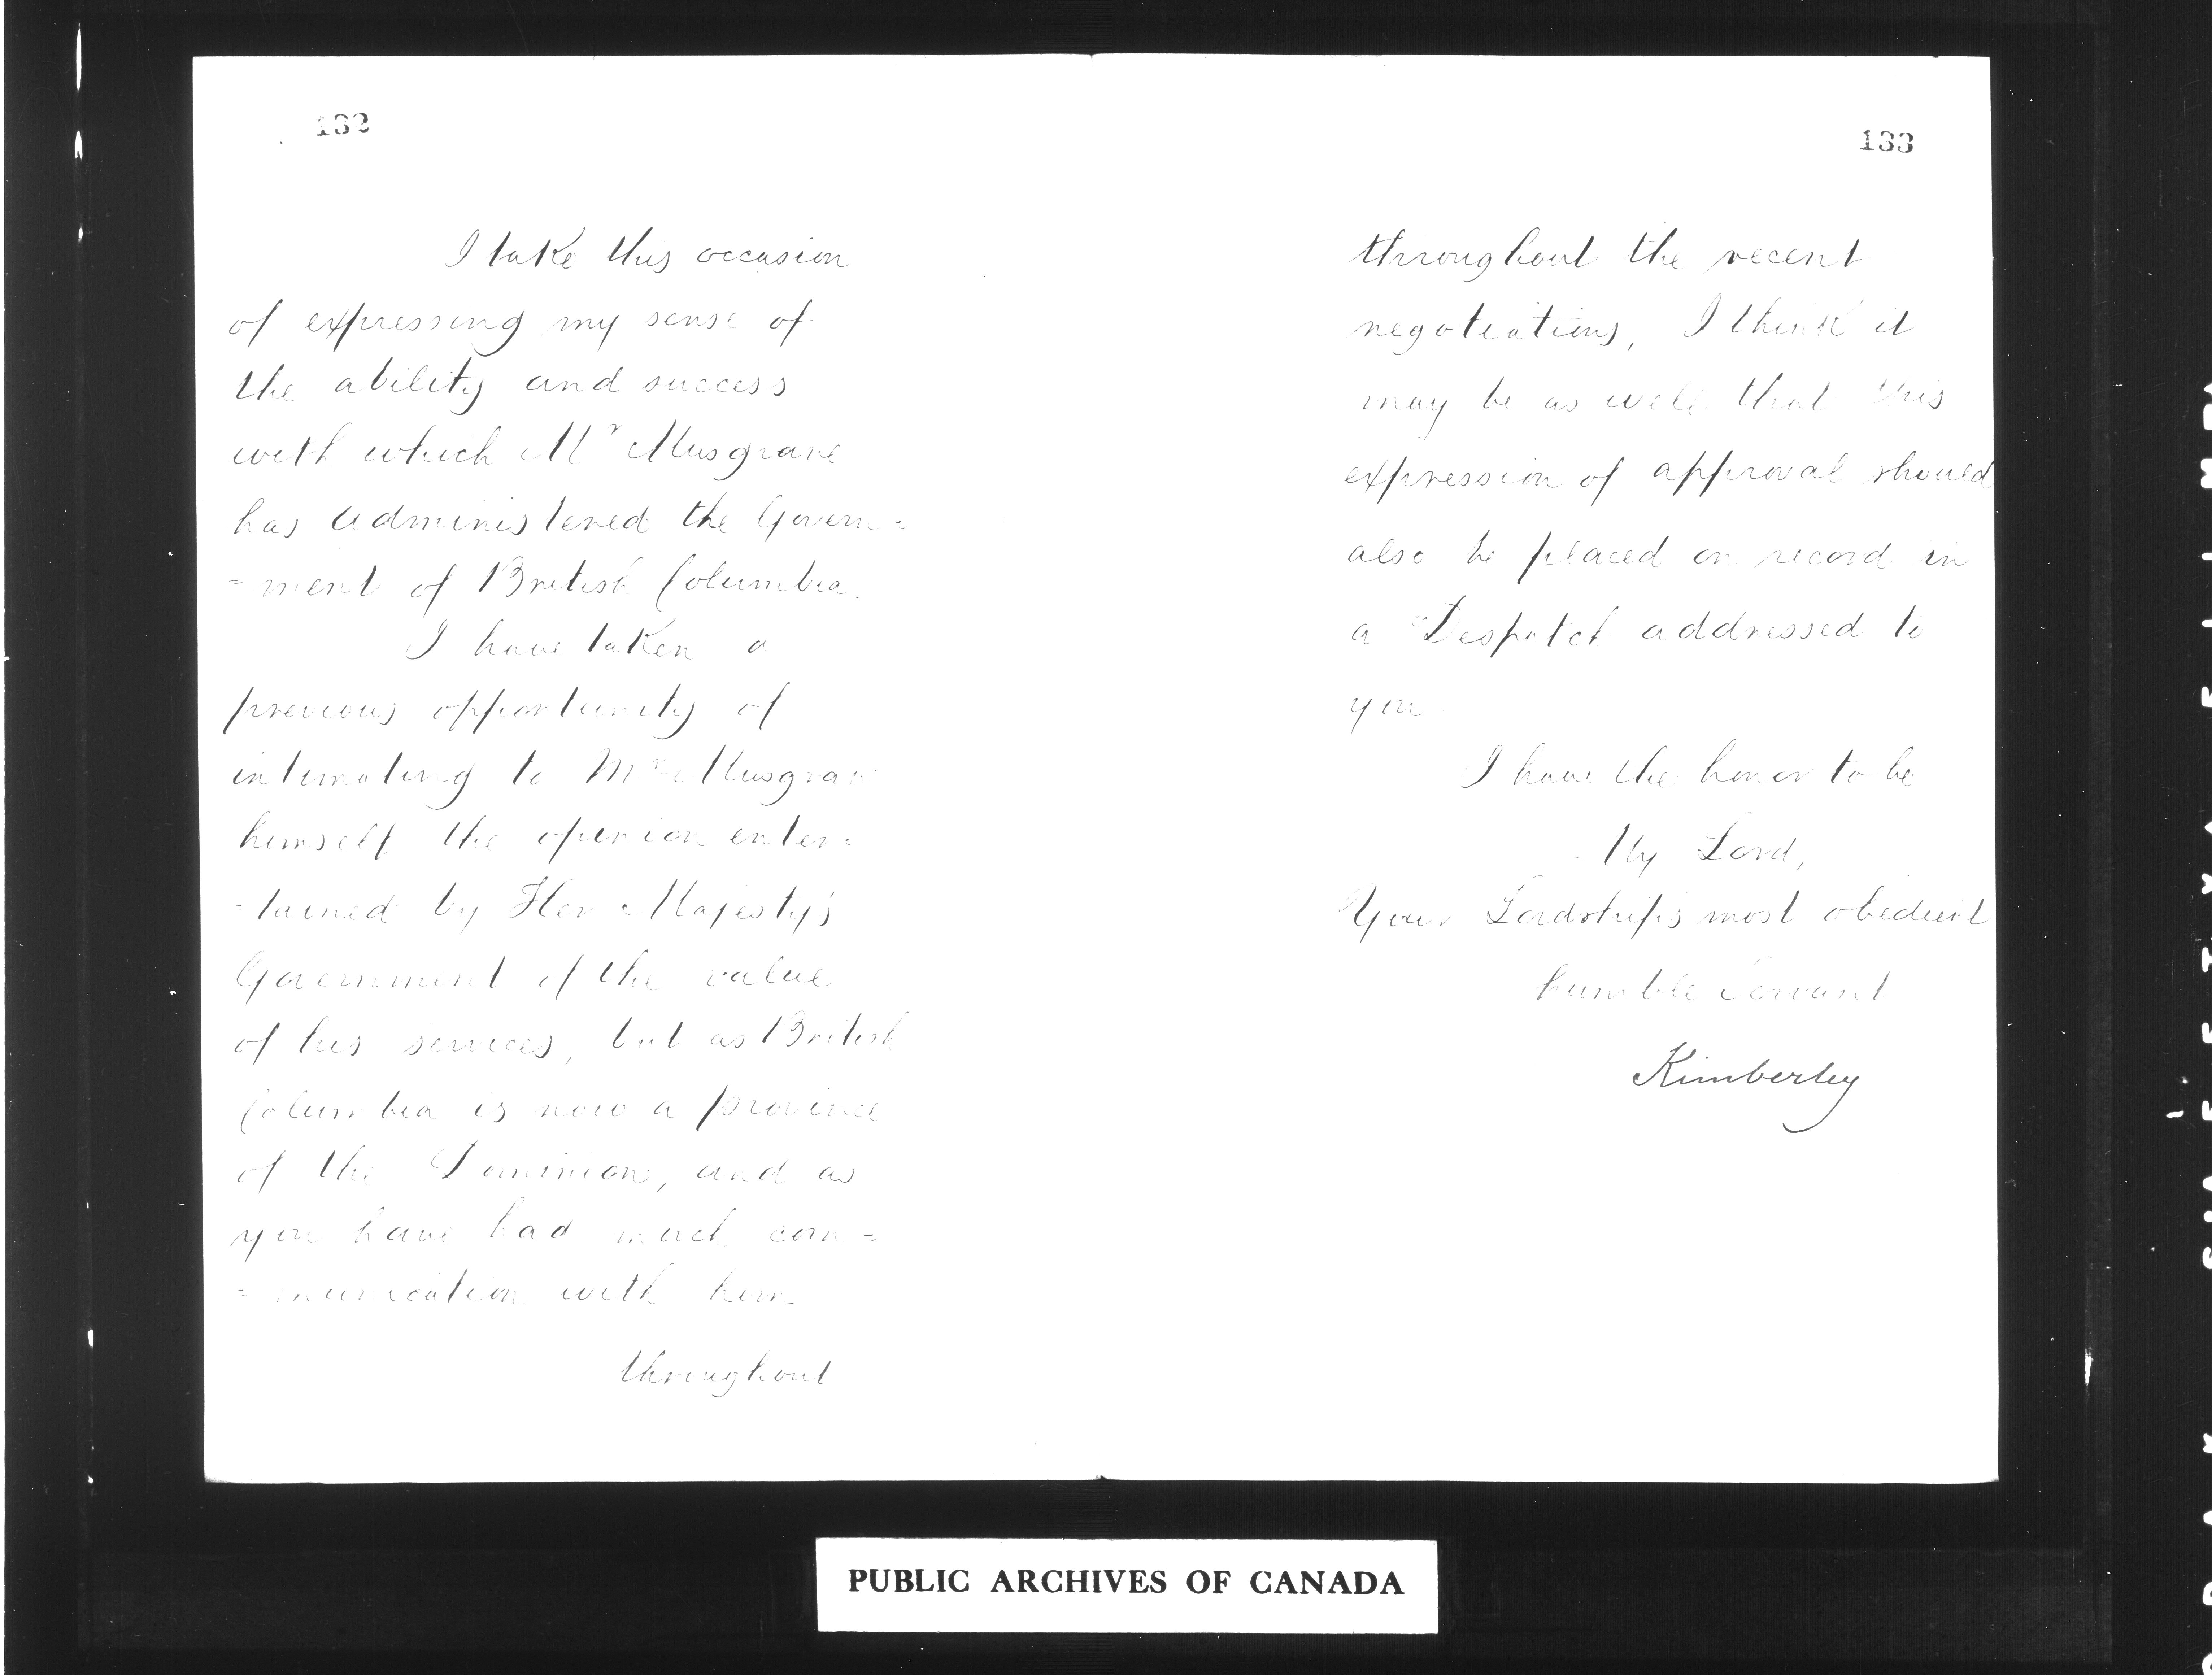 132
I take this occasion
of expressing my sense of
the ability and success
with which Mr Musgrave
has administered the Govern=
=ment of British Columbia.
I have taken a
previous opportunity of
intimating to Mr Musgrave
himself the opinion enter-
-tained by Her Majesty's
Government of the value
of his services, but as British
Columbia is now a province
of the Dominion, and as
you have had much com=
=munication with him
throughout
133
throughout the recent
negotiations, I think it
may be as well that this
expression of approval should
also be placed on record in
a Despatch addressed to
you.
I have the honor to be
My Lord,
Your Lordship's most obedient
humble Servant
Kimberley
PUBLIC ARCHIVES OF CANADA